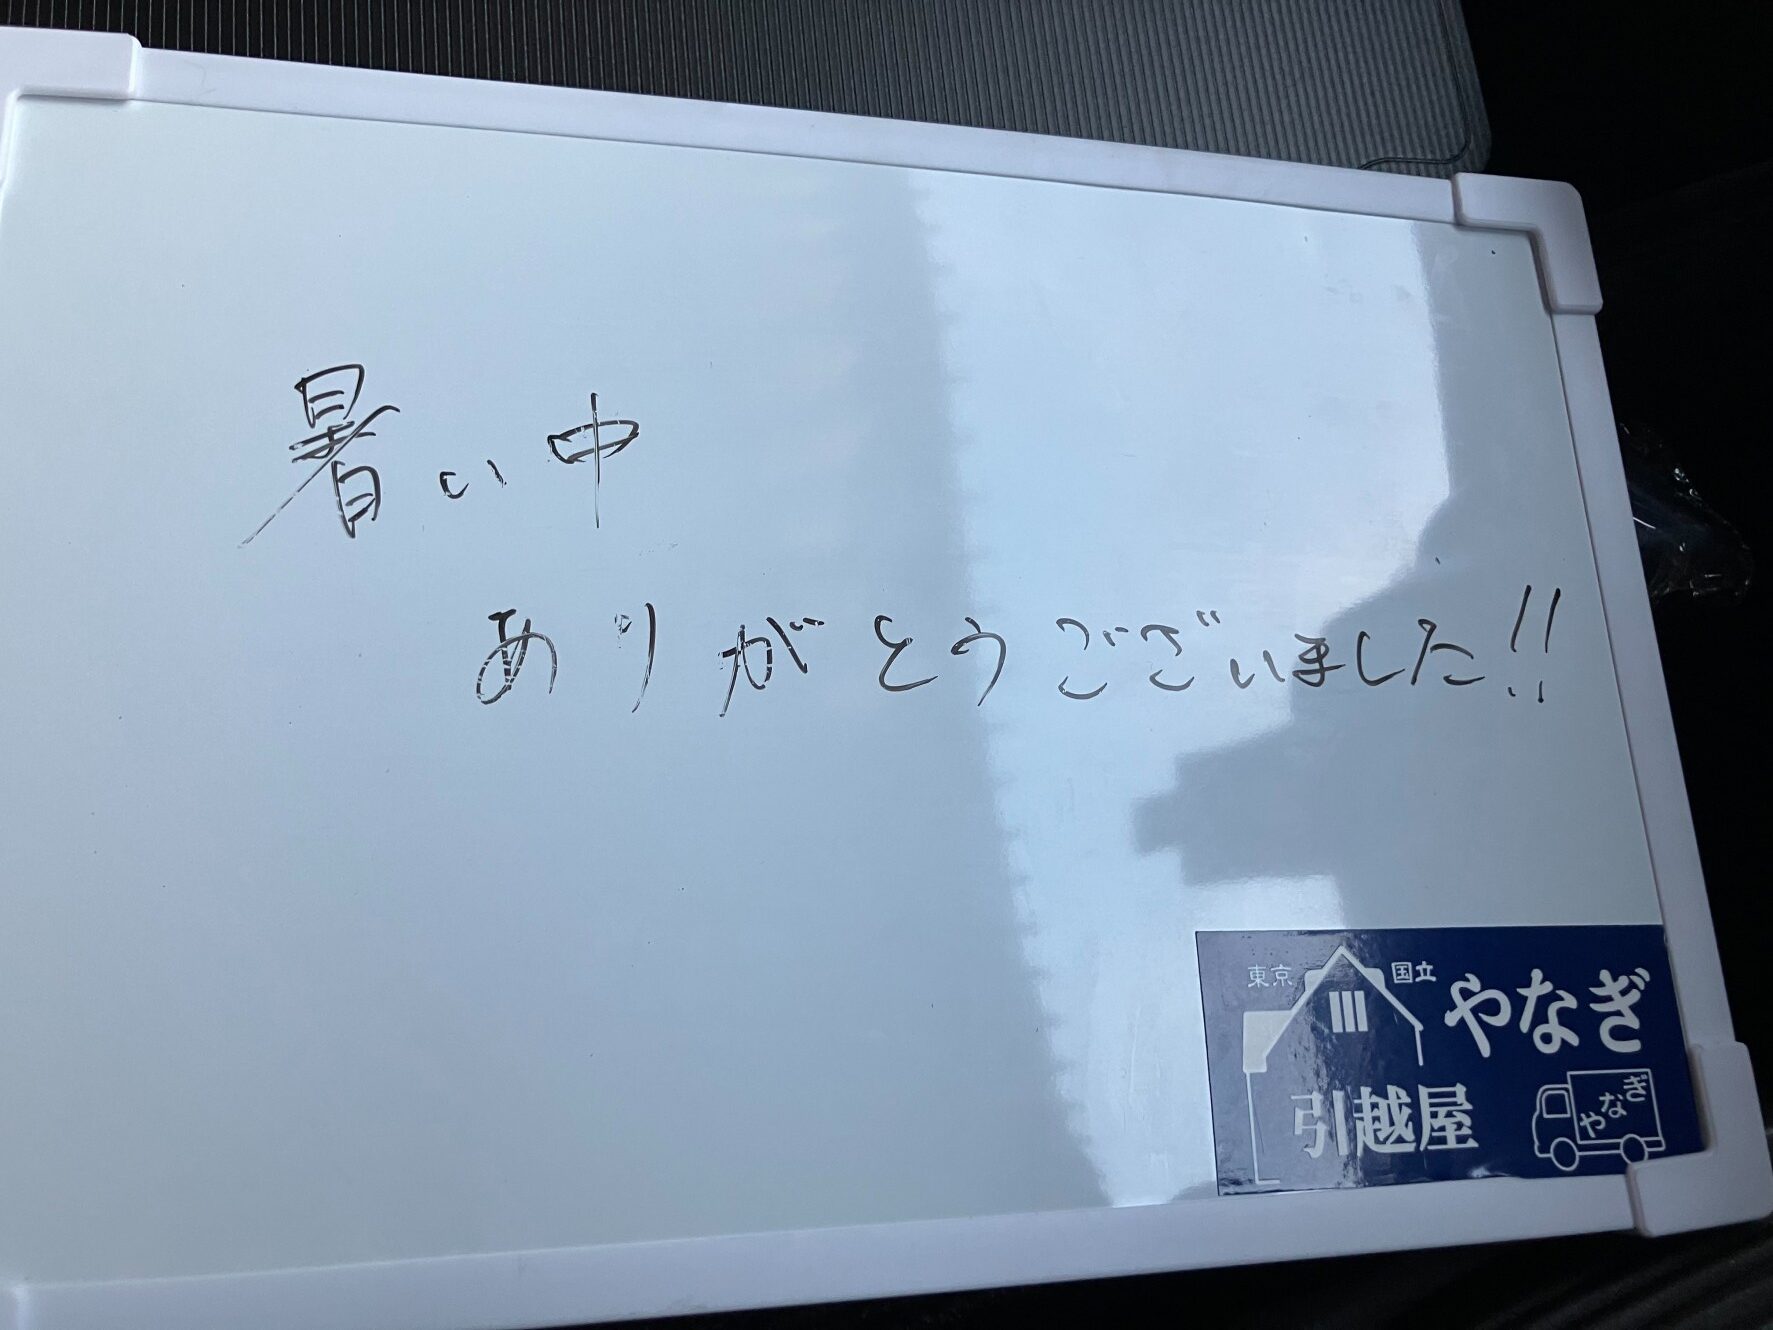 暑い中
ありがとうございました!!
東京 国立 やなぎ
引越屋
やなぎ